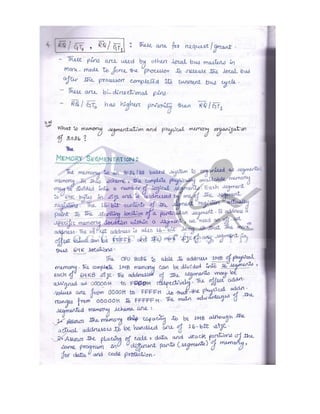 4. RQ/GT0 , RQ/GT1 : These are for request/grant.
- These pins are used by other local bus masters in
max. mode to force the processor to release the local bus
after the processor completed its current bus cycle.
- These are bi-directional pins.
- RQ/GT0 has higher priority than RQ/GT1.
What is memory segmentation and physical memory organization
of 8086?
The
MEMORY SEGMENTATION:
The memory in an 8086/88 based system is organized as segmented
memory. In this scheme, the complete physically available memory
may be divided into a number of logical segments. Each segment
is 64K bytes in size and is addressed by one of the segment
registers. The 16-bit contents of the segment register actually
point to the starting location of a particular segment. To address a
specific memory location within a segment, we need an offset
address. The offset address is also 16-bit long so that the max.
offset value can be FFFFH and the max. size of any segment is
thus 64K locations.
The CPU 8086 is able to address 1MB of physical
memory. The complete 1MB memory can be divided into 16 segments,
each of 64KB size. The addresses of the segments may be
assigned as 0000H to F000H respectively. The offset addr.
values are from 0000H to FFFFH so that the physical addr.
ranges from 00000H to FFFFFH. The main advantages of the
segmented memory scheme are:
1. Allows the memory capacity to be 1MB although the
actual addresses to be handled are of 16-bit size.
2. Allows the placing of code, data and stack portions of the
same program in different parts (segments) of memory,
for data and code protection.